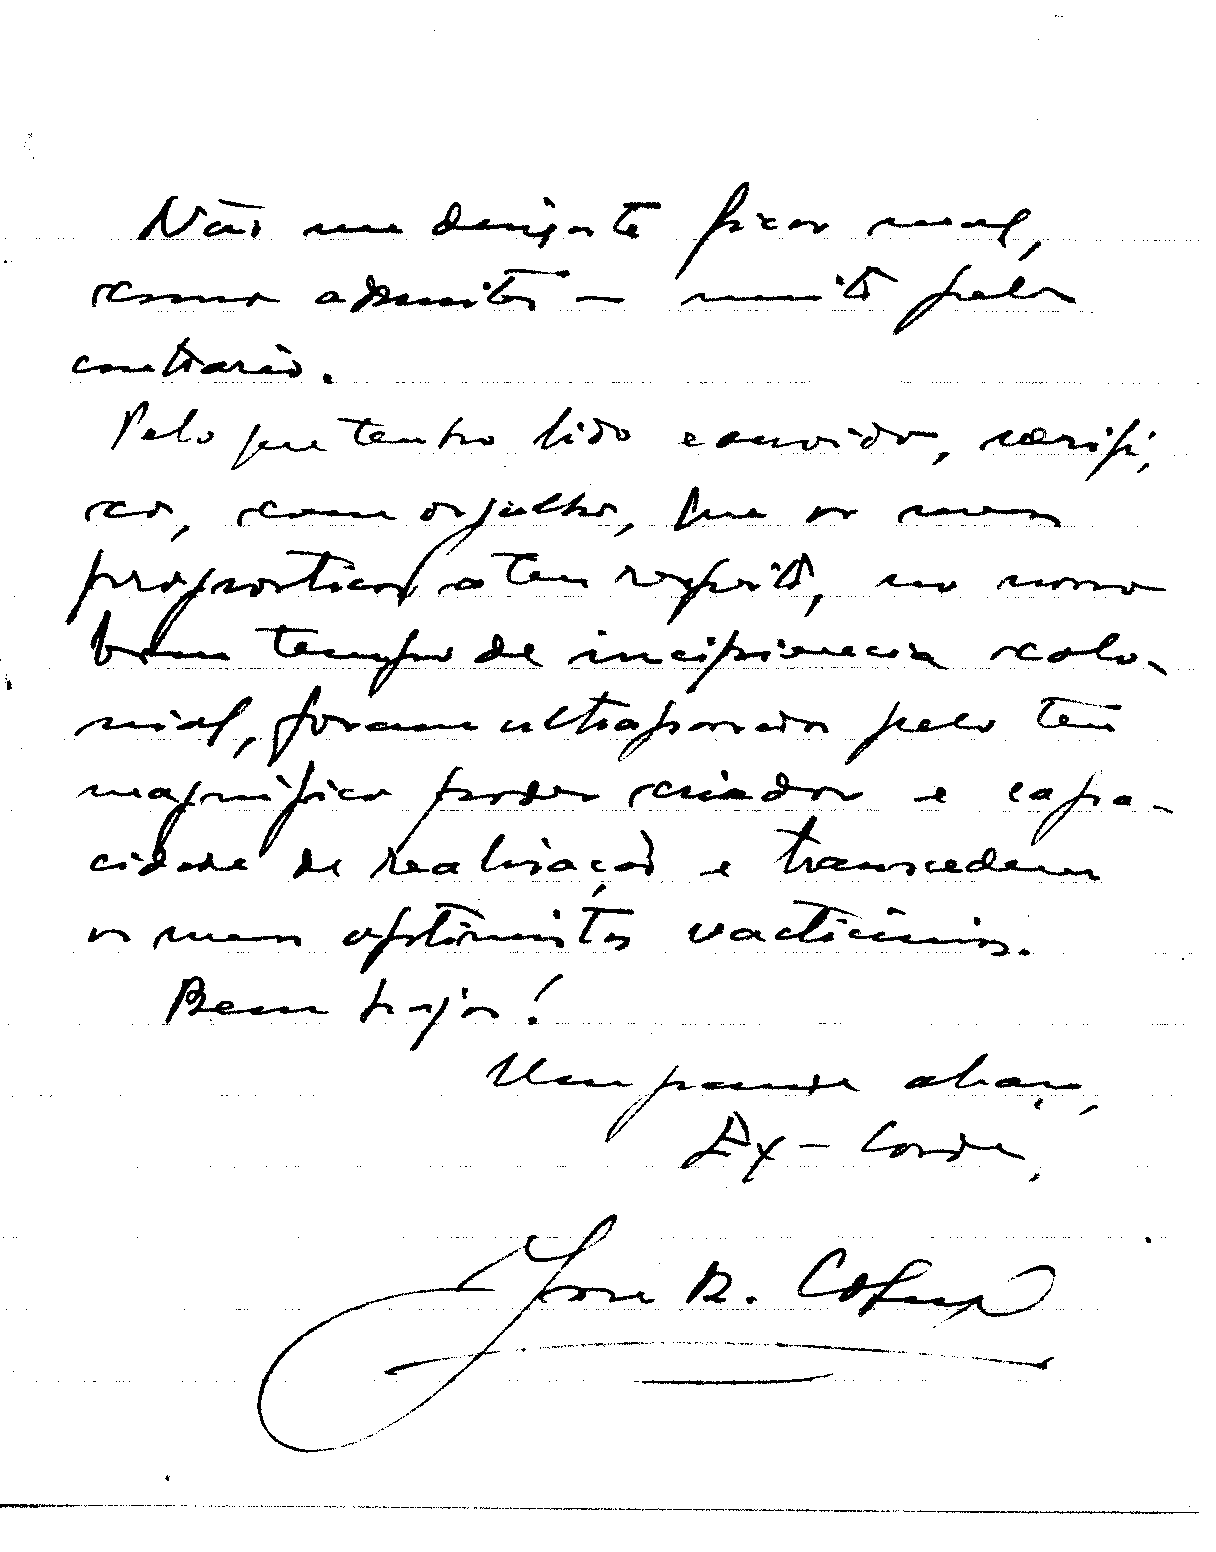 Não me deixaste ficar mal,
como admites — muito pelo
contrário.
Pelo que tenho lido e ouvido, verifi-
co, com orgulho, que os meus
prognósticos a teu respeito, no nosso
bom tempo de incipiencia colo-
nial, foram ultrapassados pelo teu
magnífico poder criador e capa-
cidade de realização e transcedem
os meus optimistas vacticinios.
Bem hajas!
Um grande abraço,
Ex-Corde,
José R.